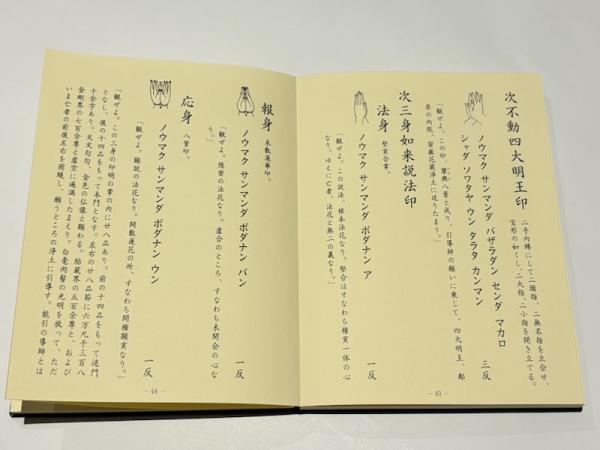 次不動四大明王印
二手内縛にして二頭指、二無名指を立合せ、
宝形の如くし、二大指、二小指を開き立てる。
ノウマク サンマンダ バザラダン センダ マカロ
シャダ ソワタヤ ウン タラタ カンマン
三反
「観ぜよ。この印、輦輿八葉と成り、引導師の願いに乗じて、四大明王、都
率の内院、密厳花蔵浄土に送りたまう。」
次三身如来説法印
法身 堅実合掌。
ノウマク サンマンダ ボダナン ア
一反
「観ぜよ。この説法、根本法花なり。堅合はすなわち権実一体の心
なり。ゆえに亡者、法花と無二の義なり。」
― 43 ―
報身 未敷蓮華印。
ノウマク サンマンダ ボダナン バン
一反
「観ぜよ。隠密の法花なり。虚合のところ、すなわち未開会の心な
り。」
応身 八葉印。
ノウマク サンマンダ ボダナン ウン
一反
「観ぜよ。顕説の法花なり。開敷蓮花の所、すなわち開権顕実なり。」
「観ぜよ。この三身の印明の掌の内に廿八品あり。前の十四品をもって迹門
となし、後の十四品をもって本門となす。左右の廿八品節に六万九千三百八
十余字あり。文文句句、金色の仏像と顕わる。胎蔵界の五百余尊と、および
金剛界の七百余尊と虚空に遍満したまえり。白毫肉髻の光明を放って、ただ
いま亡者の前後左右を囲繞し、願うところの浄土に引導す。能引の導師とは
― 44 ―